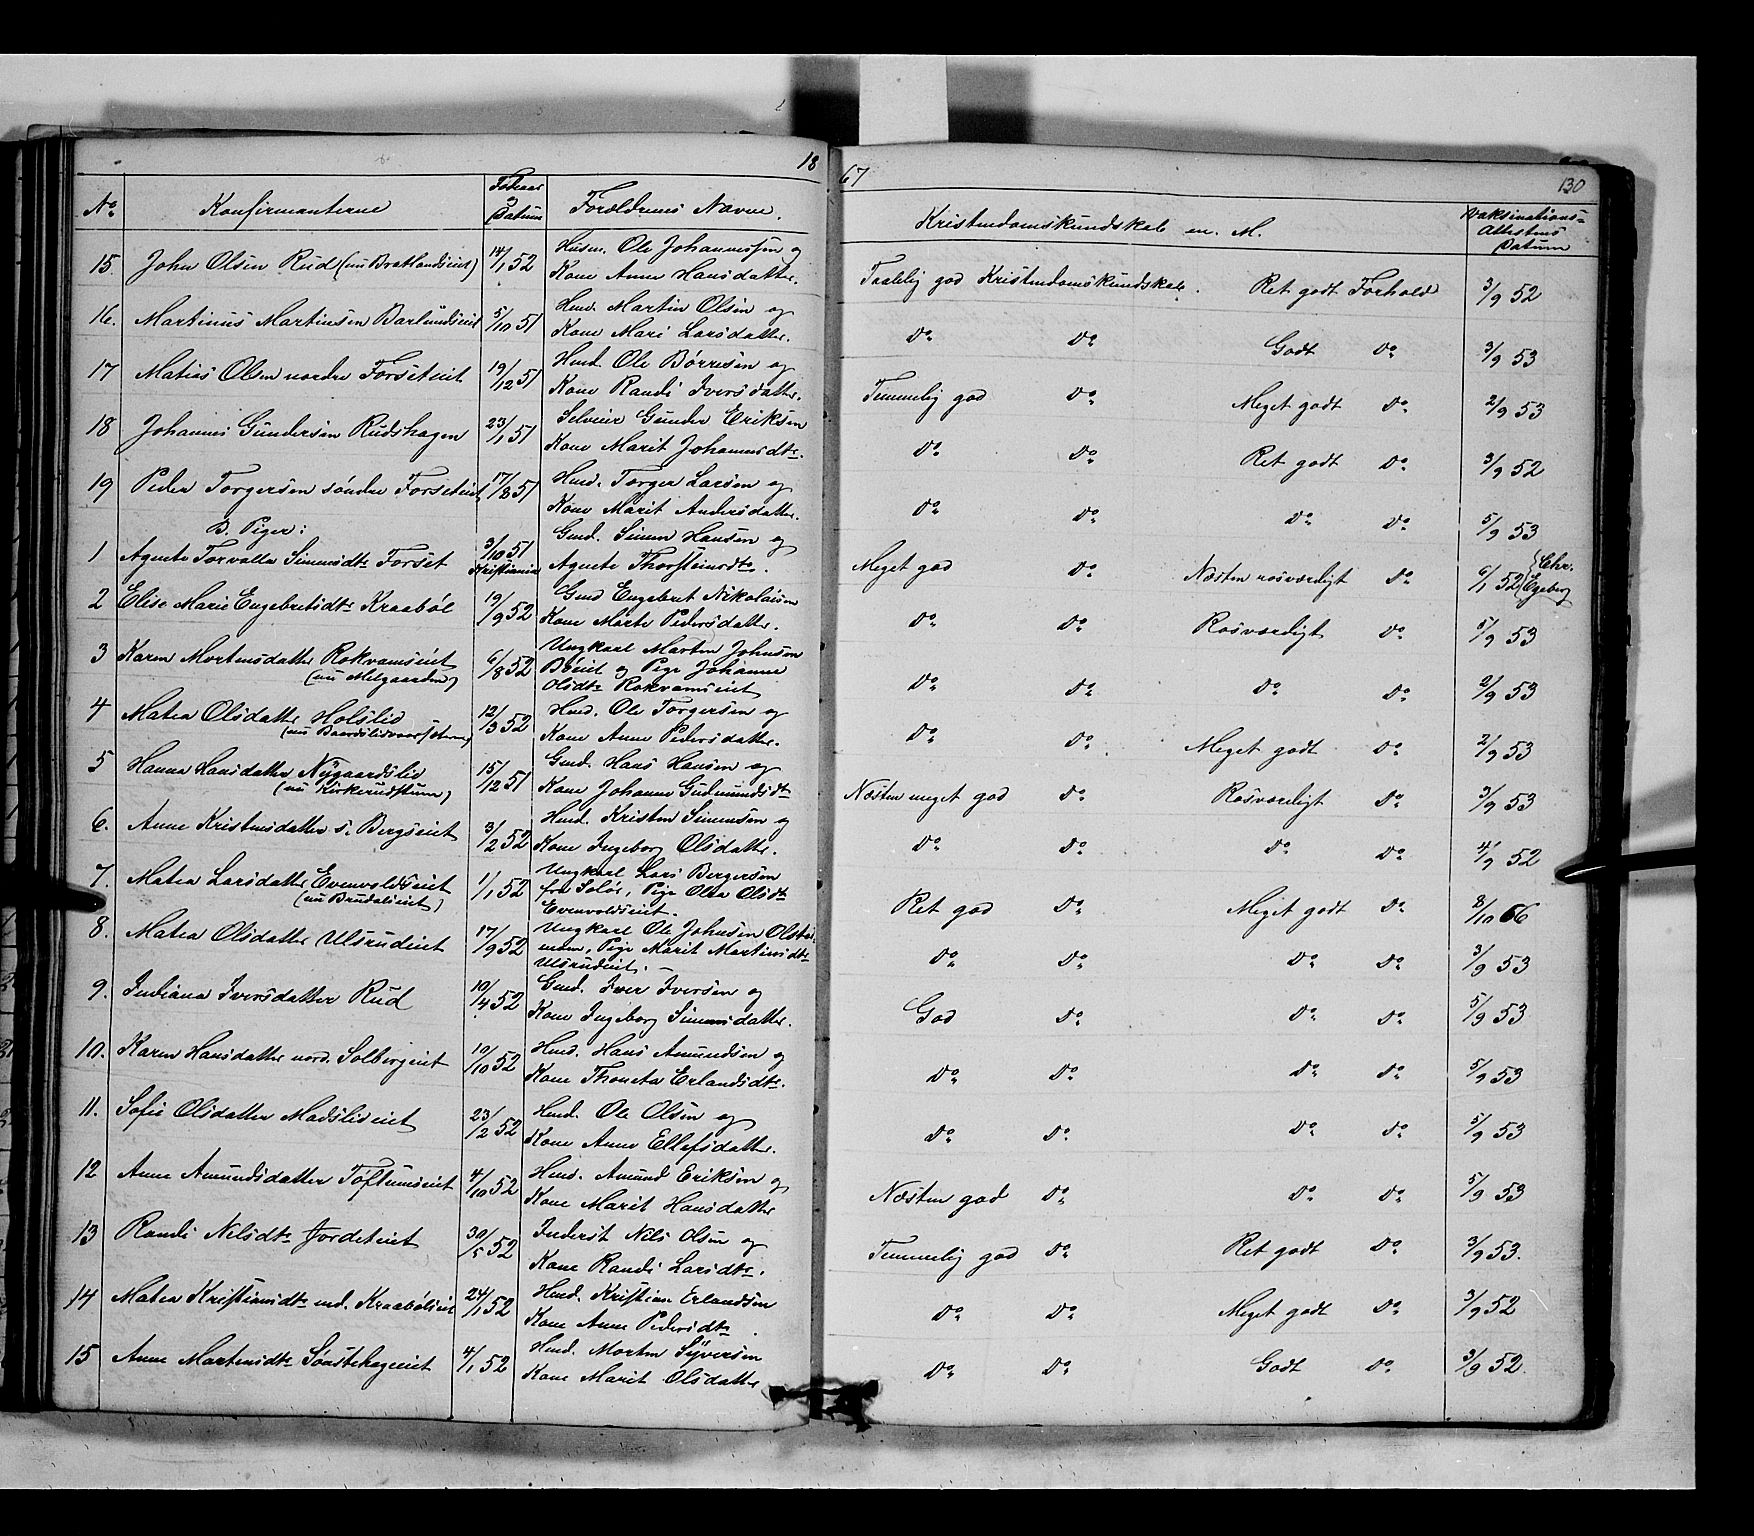 18
67
130
No. Konfirmanterne Datum Forældrenes Navne.
Kristendomskundskab m. M. Vaksinations=
Attestens
Datum
15. John Olsen Rud (nu Bratlandseiet) 14/1 52 Husm. Ole Johannessen og
Kone Anne Hansdatter.
Taalelig god Kristendomskundskab. Ret godt Forhold 3/9 52
16. Martinus Martinsen Barlundseiet 5/10 51 Hmd. Martin Olsen og
Kone Mari Larsdatter.
Do Do Godt Do 3/9 53
17 Matias Olsen nordre Forseteiet 19/12 51 Hmd. Ole Børresen og
Kone Randi Iversdatter.
Temmelig god Do Meget godt Do 2/9 53
18 Johannes Gundersen Rudshagen 23/1 51 Selveier Gunder Eriksen
Kone Marit Johannesdtr.
Do Do Ret godt Do 3/9 52
19 Peder Torgersen søndre Forseteiet 17/8 51 Hmd. Torger Larsen og
Kone Marit Andersdatter.
Do Do Do Do 5/9 53
B. Piger:
1 Agnete Torvalla Simensdtr Forset 3/10 51 Kristiania Gmd. Simen Hansen og
Agnete Thorsteinsdtr.
Meget god Do Næsten rosværdigt Do 6/1 52 {Chr. Egeberg
2 Elise Marie Engebretsdtr Kraabøl 19/9 52 Gmd Engebret Nikolaisen
Kone Marte Pedersdatter.
Do Do Rosværdigt Do 5/9 53
3 Karen Mortensdatter Rokvamseiet
(nu Melgaarden) 6/8 52 Ungkarl Morten Johnsen
Bøeiet og Pige Johanne
Olsdtr Rokvamseiet
Do Do Do Do 2/9 53
4 Matea Olsdatter Holslid 12/3 52 Hmd. Ole Torgersen og
Kone Anne Pedersdatter.
Do Do Meget godt Do 2/9 53
5 Hanna Hansdatter Nygaardslid
(nu Kirkerudstuen) 15/12 51 Gmd. Hans Hansen og
Kone Johanne Gudmundsdtr
Næsten meget god Do Rosværdigt Do 3/9 53
6. Anne Kristensdatter s. Bergseiet 3/2 52 Hmd. Kristen Simensen og
Kone Ingeborg Olsdatter.
Do Do Do Do 4/9 52
7. Matea Larsdatter Evenvoldseiet
(nu Brudalseiet) 1/1 52 Ungkarl Lars Bergersen
fra Solør, Pige Olea Olsdtr
Evenvoldseiet.
Ret god Do Meget godt Do 8/10 66
8. Matea Olsdatter Ulsrudeiet 17/9 52 Ungkarl Ole Johnsen
Pige Marit Martinsdtr
Ulsrudeiet.
Do Do Do Do 3/9 53
9. Indiana Iversdatter Rud 10/4 52 Gmd. Iver Iversen og
Kone Ingeborg Simensdatter.
God Do Do Do 5/9 53
10. Karen Hansdatter nord. Solbergeiet 10/10 52 Hmd. Hans Amundsen og
Kone Thoneta Erlandsdtr.
Do Do Do Do 5/9 53
11. Sofie Olsdatter Madslideiet 23/2 52 Hmd. Ole Olsen og
Kone Anne Ellefsdatter.
Do Do Do Do 5/9 53
12 Anne Amundsdatter Toftumseiet 4/10 52 Hmd. Amund Eriksen og
Kone Marit Hansdatter
Næsten god Do Do Do 5/9 53
13 Randi Nilsdtr Jordeteiet 30/5 52 Inderst Nils Olsen og
Kone Randi Larsdtr.
Temmelig god Do Ret godt Do 3/9 53.
14 Matea Kristiansdtr ned. Kraabølseiet 24/1 52 Hmd. Kristian Erlandsen
Kone Anne Pedersdtr.
Do Do Meget godt Do 3/9 52
15 Anne Martensdtr Sønstehageeiet 4/1 52 Hmd. Morten Syversen
Kone Marit Olsdatter
Do Do Godt Do 3/9 52.